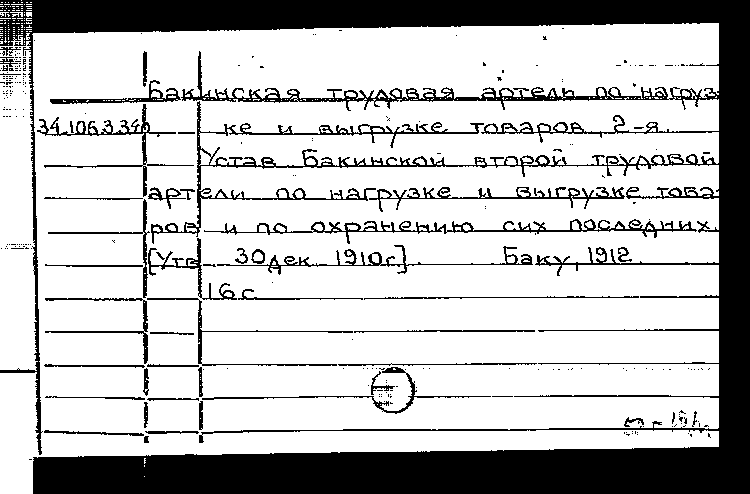 Бакинская трудовая артель по нагруз-
34.106.3.340. ке и выгрузке товаров, 2-я.
Устав Бакинской второй трудовой
артели по нагрузке и выгрузке това-
ров и по охранению сих последних.
[Утв. 30 дек. 1910г.]. Баку, 1912.
16 с.